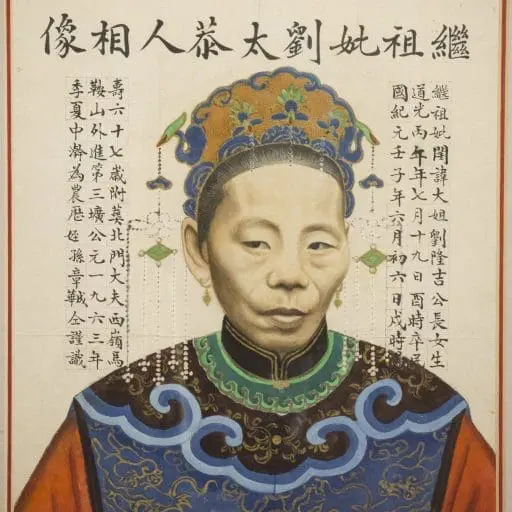 繼祖妣劉太恭人相像
繼祖妣閨諱大姐劉隆吉公長女生
道光丙午年七月十九日酉時卒民
國紀元壬子年六月初六日戌時
壽六十七歲附葬北門大夫西嶺馬
鞍山外進第三壙公元一九六三年
季夏中澣為農歷孫章仝謹識